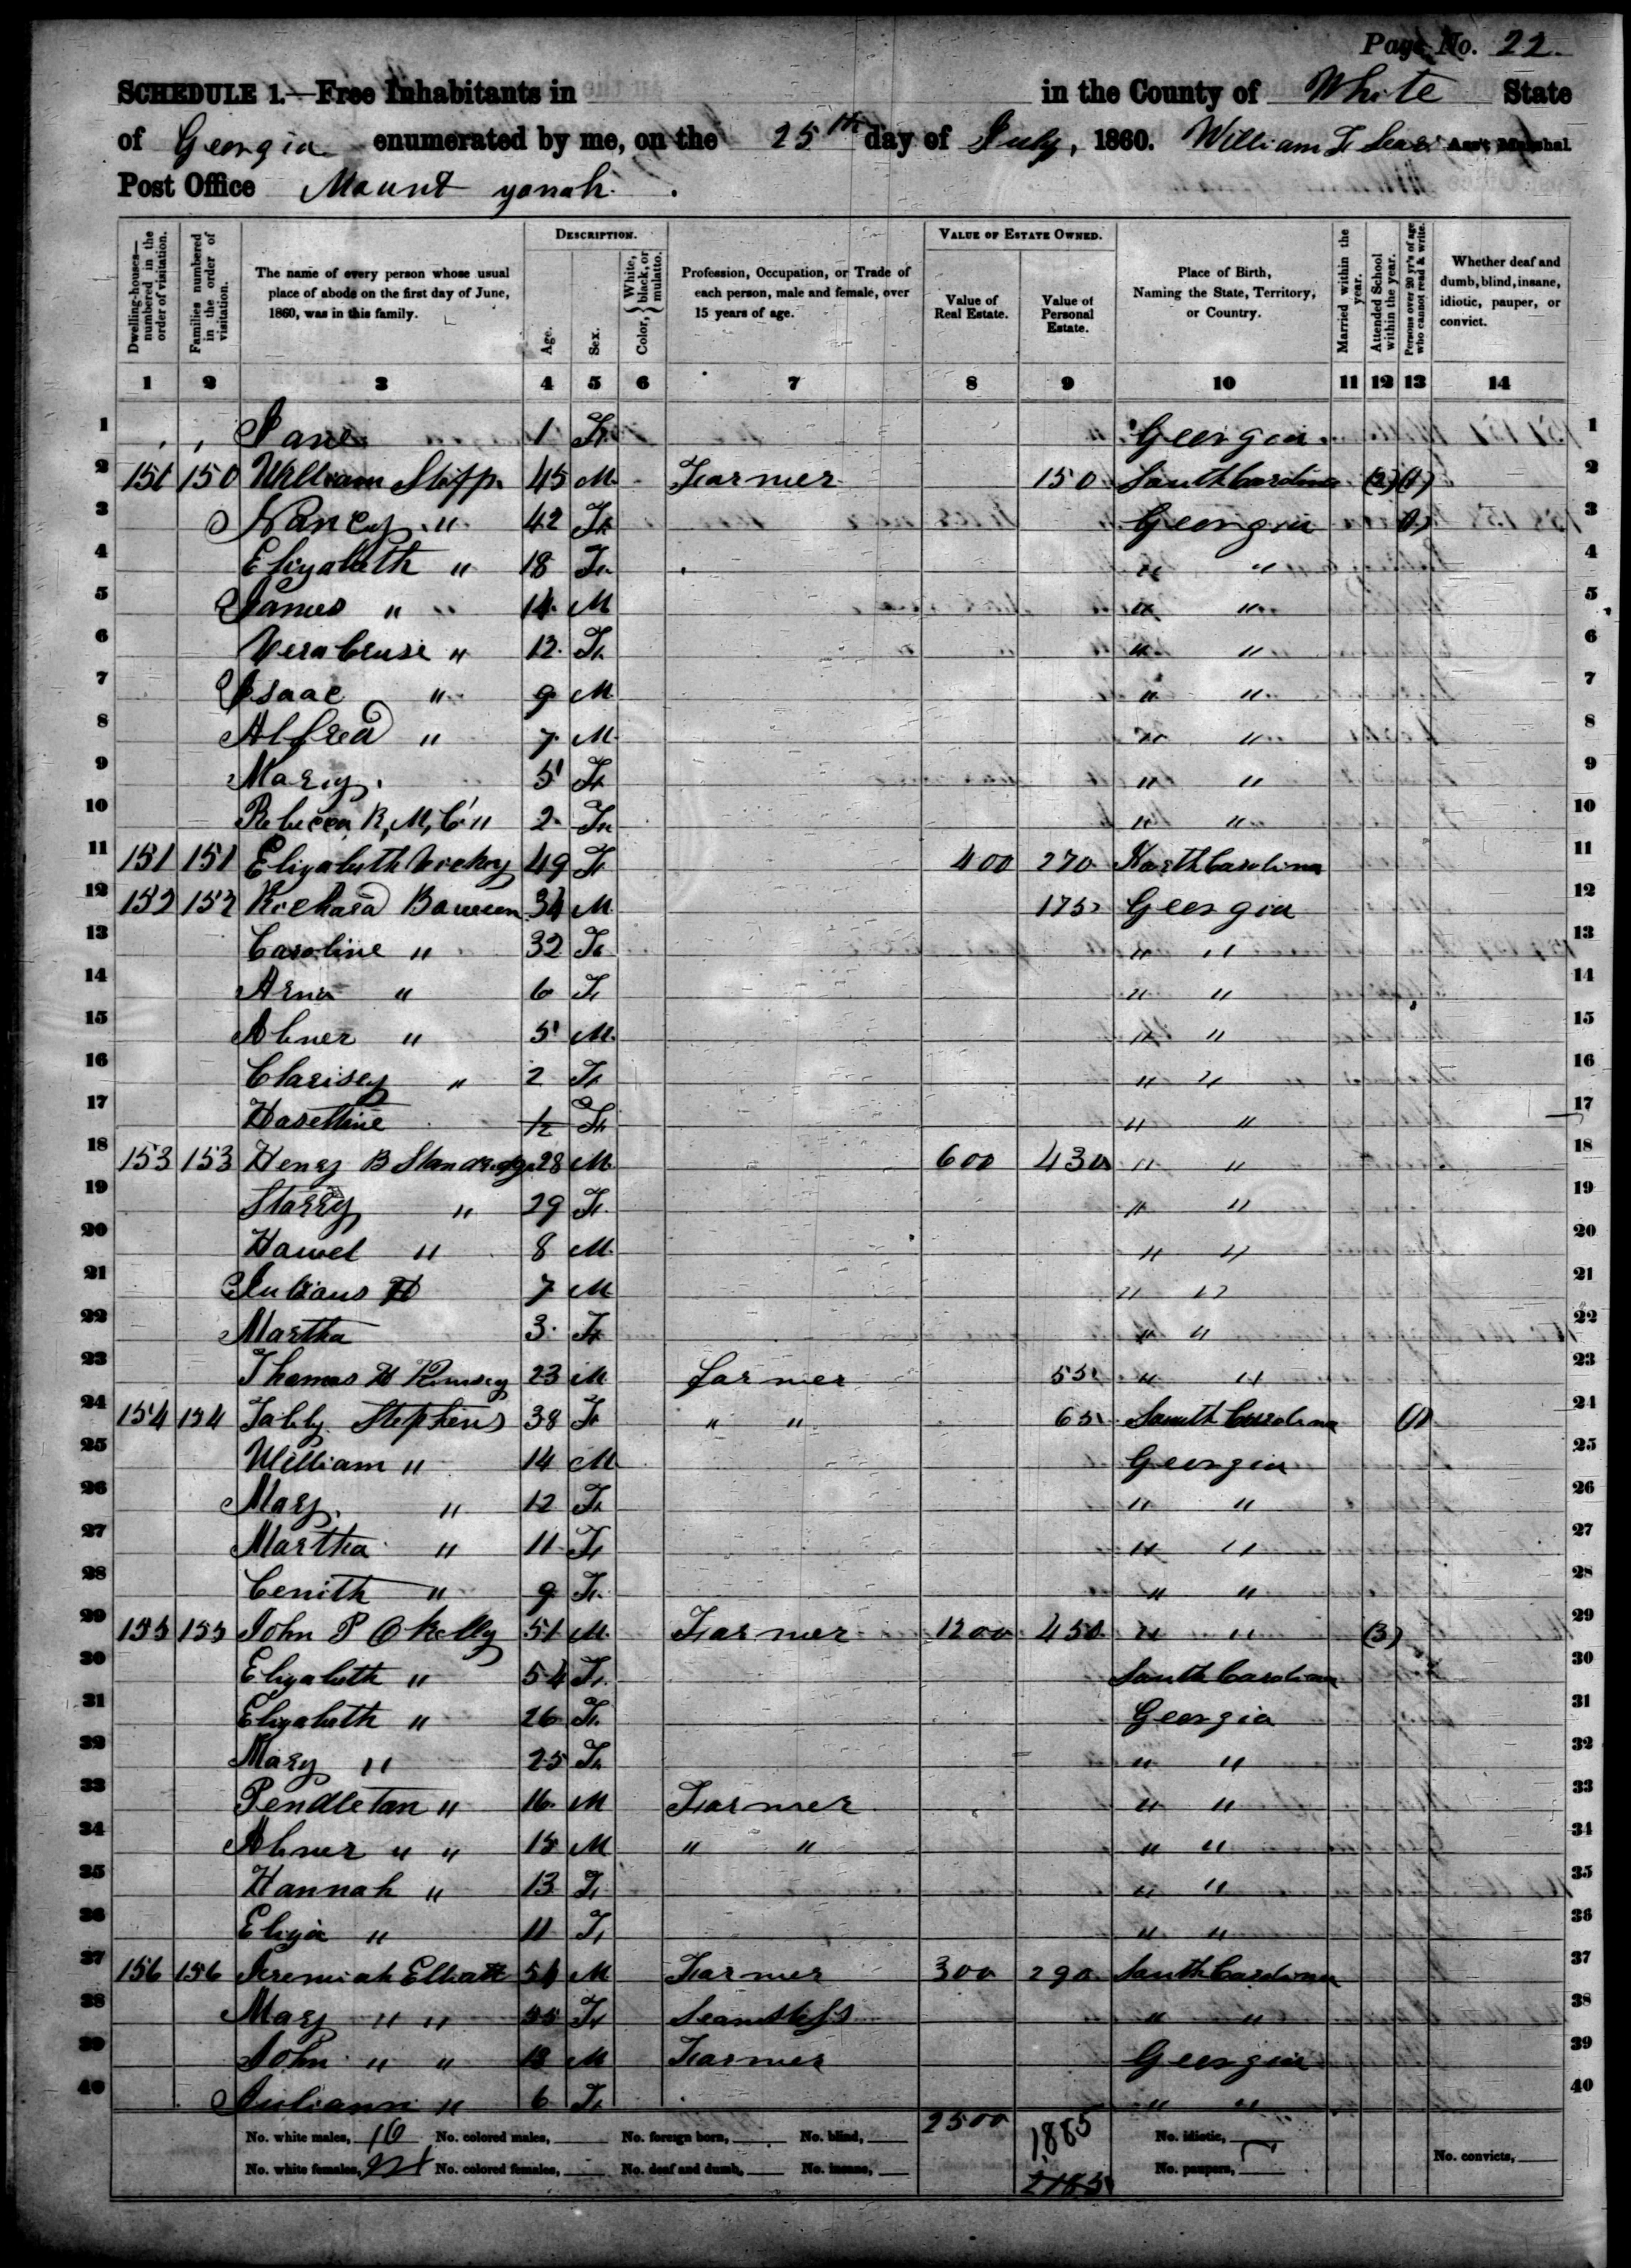 Page No. 22.
SCHEDULE 1.—Free Inhabitants in in the County of White State
of Georgia enumerated by me, on the 25th day of July, 1860. William Ass't Marshal
Post Office Mount yonah.
DESCRIPTION. VALUE OF ESTATE OWNED.
Dwelling-houses—numbered in the order of visitation. Families numbered in the order of visitation. The name of every person whose usual place of abode on the first day of June, 1860, was in this family. Age. Sex. Color, { White, black, or mulatto. Profession, Occupation, or Trade of each person, male and female, over 15 years of age. Value of Real Estate. Value of Personal Estate. Place of Birth, Naming the State, Territory, or Country. Married within the year. Attended School within the year. Persons over 20 yr's of age who cannot read & write. Whether deaf and dumb, blind, insane, idiotic, pauper, or convict.
1 2 3 4 5 6 7 8 9 10 11 12 13 14
1 , , Jane 1 F Georgia 1
2 151 150 William 45 M Farmer 150 South Carolina (2) (1) 2
3 Nancy " 42 F Georgia (1) 3
4 Elizabeth " 18 F " " 4
5 James " 14 M " " 5
6 Vera Cruse " 12 F " " 6
7 Isaac " 9 M " " 7
8 Alfred " 7 M " " 8
9 Mary 5 F " " 9
10 Rebecca R, M, C " 2 F " " 10
11 151 151 Elizabeth Vickry 49 F 400 270 North Carolina 11
12 152 152 Richard Bowen 34 M 175 Georgia 12
13 Caroline " 32 F " " 13
14 " 6 F " " 14
15 Abner " 5 M " " 15
16 Clarisey " 2 F " " 16
17 Haseltine F " " 17
18 153 153 Henry B Standredge 28 M 600 430 " " 18
19 Starry " 29 F " " 19
20 Hawel " 8 M " " 20
21 7 M " " 21
22 Martha 3 F " " 22
23 Thomas H Kimsey 23 M farmer 55 " " 23
24 154 154 Tabby Stephens 38 F " " 65 South Carolina (1) 24
25 William " 14 M Georgia 25
26 Mary " 12 F " " 26
27 Martha " 11 F " " 27
28 Cenith " 9 F " " 28
29 155 155 John P OKelly 51 M Farmer 1200 450 " " (3) 29
30 Elizabeth " 54 F South Carolina 30
31 Elizabeth " 26 F Georgia 31
32 Mary " 25 F " " 32
33 Pendleton " 16 M Farmer " " 33
34 Abner " " 15 M " " " " 34
35 Hannah " 13 F " " 35
36 Eliza " 11 F " " 36
37 156 156 Jeremiah Elliott 54 M Farmer 300 290 South Carolina 37
38 Mary " " F Seamstress " " 38
39 John " " M Farmer Georgia 39
40 Juliann " 6 F " " 40
No. white males, 16 No. colored males, No. foreign born, No. blind, 2500 1,885 No. idiotic,
No. white females, 24 No. colored females, No. deaf and dumb, No. insane, 2185 No. paupers, No. convicts,